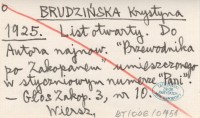 BRUDZIŃSKA Krystyna
1925. List otwarty. Do
Autora najnow. "Przewodnika
po Zakopanem" umieszczonego
w styczniowym numerze "Pani"
– Głos Zakop. 3, nr 10.
Wiersz.